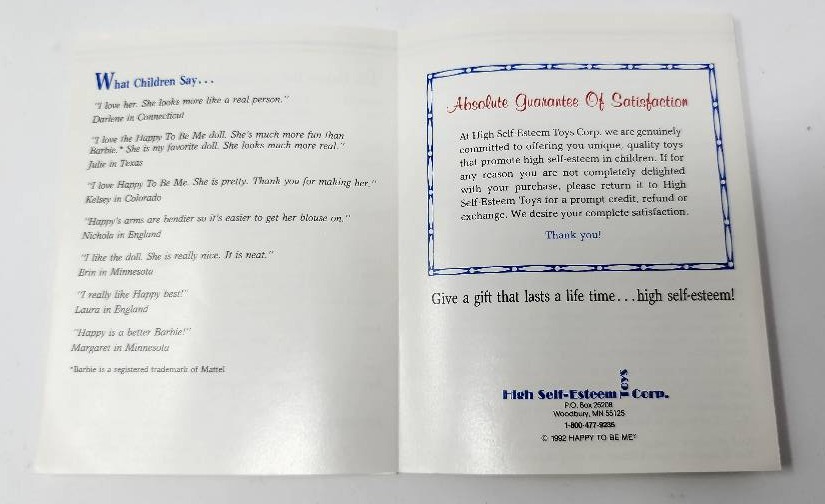 What Children Say...
"I love her. She looks more like a real person."
Darlene in Connecticut
"I love the Happy To Be Me doll. She's much more fun than
Barbie.* She is my favorite doll. She looks much more real."
Julie in Texas
"I love Happy To Be Me. She is pretty. Thank you for making her."
Kelsey in Colorado
"Happy's arms are bendier so it's easier to get her blouse on."
Nichola in England
"I like the doll. She is really nice. It is neat."
Erin in Minnesota
"I really like Happy best!"
Laura in England
"Happy is a better Barbie!"
Margaret in Minnesota
*Barbie is a registered trademark of Mattel
Absolute Guarantee Of Satisfaction
At High Self Esteem Toys Corp. we are genuinely
committed to offering you unique, quality toys
that promote high self-esteem in children. If for
any reason you are not completely delighted
with your purchase, please return it to High
Self-Esteem Toys for a prompt credit, refund or
exchange. We desire your complete satisfaction.
Thank you!
Give a gift that lasts a life time...high self-esteem!
High Self-Esteem Toys Corp.
P.O. Box 25208
Woodbury, MN 55125
1-800-477-9235
© 1992 HAPPY TO BE ME